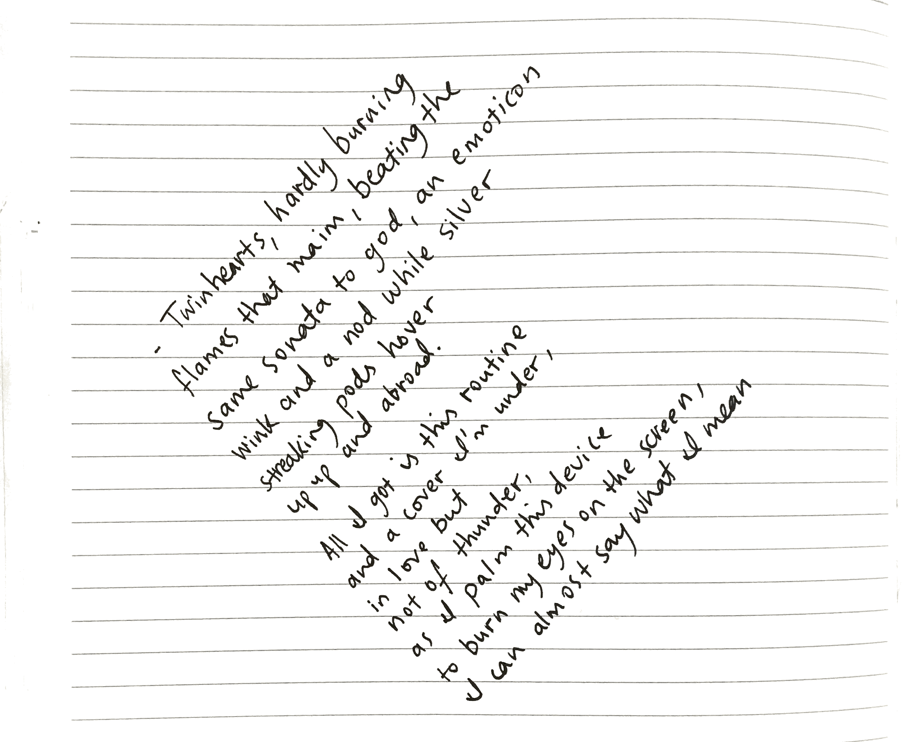 - Twinhearts, hardly burning
flames that maim, beating the
same sonata to god, an emoticon
wink and a nod while silver
streaking pods hover
up up and abroad.
All I got is this routine
and a cover I'm under,
in love but
not of thunder,
as I palm this device
to burn my eyes on the screen,
I can almost say what I mean